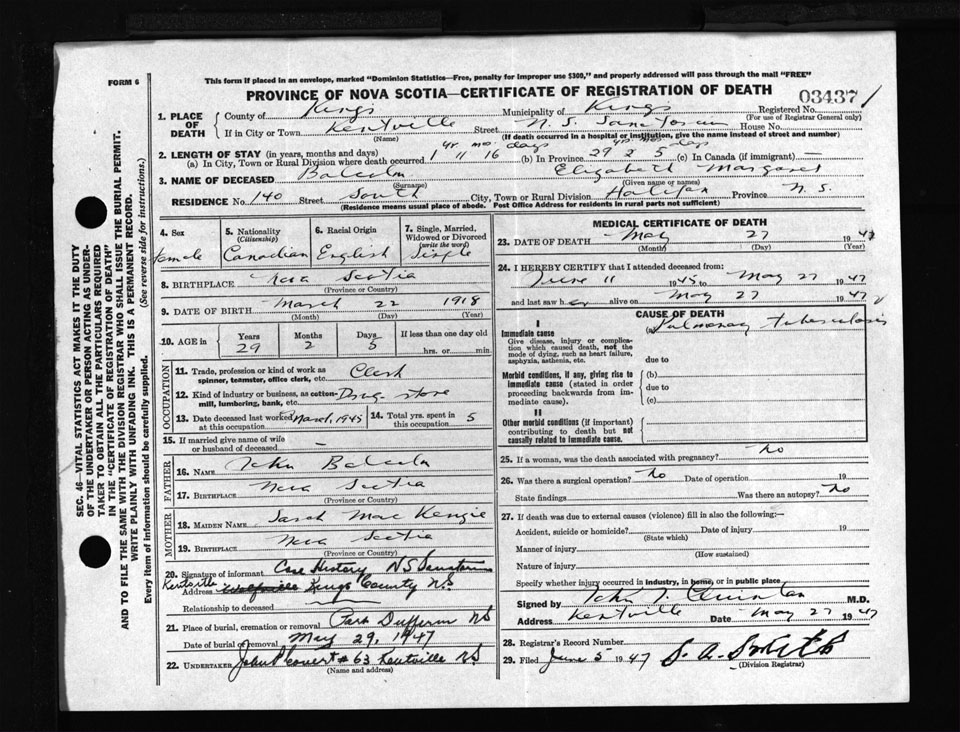 FORM 6
This form if placed in an envelope, marked "Dominion Statistics—Free, penalty for improper use $300," and properly addressed will pass through the mail "FREE"
PROVINCE OF NOVA SCOTIA—CERTIFICATE OF REGISTRATION OF DEATH
03437
1. PLACE OF DEATH
County of Kings Municipality of Kings Registered No.
(For use of Registrar General only)
If in City or Town Kentville Street N. S. Sanatorium House No.
(Name) (If death occurred in a hospital or institution, give the name instead of street and number)
2. LENGTH OF STAY (in years, months and days) yr. mo. days yrs. mos. days
(a) In City, Town or Rural Division where death occurred 1 11 16 (b) In Province 29 2 5 (c) In Canada (if immigrant) —
3. NAME OF DECEASED Balcolm Elizabeth Margaret
(Surname) (Given name or names)
RESIDENCE No. 140 Street South City, Town or Rural Division Halifax Province N. S.
(Residence means usual place of abode. Post Office Address for residents in rural parts not sufficient)
4. Sex female
5. Nationality (Citizenship) Canadian
6. Racial Origin English
7. Single, Married, Widowed or Divorced (write the word) Single
8. BIRTHPLACE Nova Scotia
(Province or Country)
9. DATE OF BIRTH March 22 1918
(Month) (Day) (Year)
10. AGE in Years Months Days If less than one day old
29 2 5 hrs. or min.
OCCUPATION
11. Trade, profession or kind of work as spinner, teamster, office clerk, etc. Clerk
12. Kind of industry or business, as cotton-mill, lumbering, bank, etc. Drug store
13. Date deceased last worked at this occupation March, 1945
14. Total yrs. spent in this occupation 5
15. If married give name of wife or husband of deceased —
FATHER
16. NAME John Balcolm
17. BIRTHPLACE Nova Scotia
MOTHER
18. MAIDEN NAME Sarah MacKenzie
19. BIRTHPLACE Nova Scotia
(Province or Country)
20. Signature of informant Case History NS Sanatorium
Address Kentville Wolfville Kings County NS
Relationship to deceased
21. Place of burial, cremation or removal Port Dufferin NS
Date of burial or removal May 29, 1947
22. UNDERTAKER # 63 Kentville NS
(Name and address)
MEDICAL CERTIFICATE OF DEATH
23. DATE OF DEATH May 27 1947
(Month) (Day) (Year)
24. I HEREBY CERTIFY that I attended deceased from:
June 11 1945 to May 27 1947
and last saw her alive on May 27 1947
CAUSE OF DEATH
I
Immediate cause
Give disease, injury or complication which caused death, not the mode of dying, such as heart failure, asphyxia, asthenia, etc.
(a) Pulmonary tuberculosis
due to
Morbid conditions, if any, giving rise to immediate cause (stated in order proceeding backwards from immediate cause).
(b)
due to
(c)
II
Other morbid conditions (if important) contributing to death but not causally related to immediate cause.
25. If a woman, was the death associated with pregnancy? No
26. Was there a surgical operation? No Date of operation 19
State findings Was there an autopsy? No
27. If death was due to external causes (violence) fill in also the following:—
Accident, suicide or homicide? Date of injury 19
(State which)
Manner of injury
(How sustained)
Nature of injury
Specify whether injury occurred in industry, in home, or in public place
Signed by John J. Quinlan M.D.
Address Kentville Date May 27 1947
28. Registrar's Record Number
29. Filed June 5 1947
(Division Registrar)
SEC. 46—VITAL STATISTICS ACT MAKES IT THE DUTY
OF THE UNDERTAKER OR PERSON ACTING AS UNDER-
TAKER TO OBTAIN ALL THE PARTICULARS REQUIRED
IN THE "CERTIFICATE OF REGISTRATION OF DEATH"
AND TO FILE THE SAME WITH THE DIVISION REGISTRAR WHO SHALL ISSUE THE BURIAL PERMIT.
WRITE PLAINLY WITH UNFADING INK. THIS IS A PERMANENT RECORD.
Every item of information should be carefully supplied. (See reverse side for instructions.)